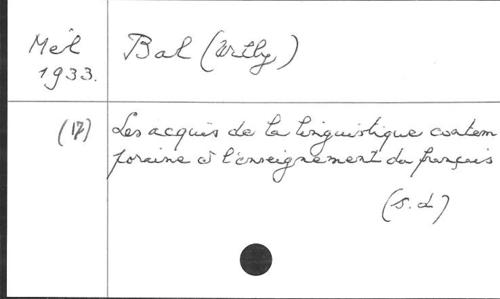 Mél
1933.
Bal (Willy)
(17)
Les acquis de la linguistique contem
poraine à l'enseignement du français
(s.d)